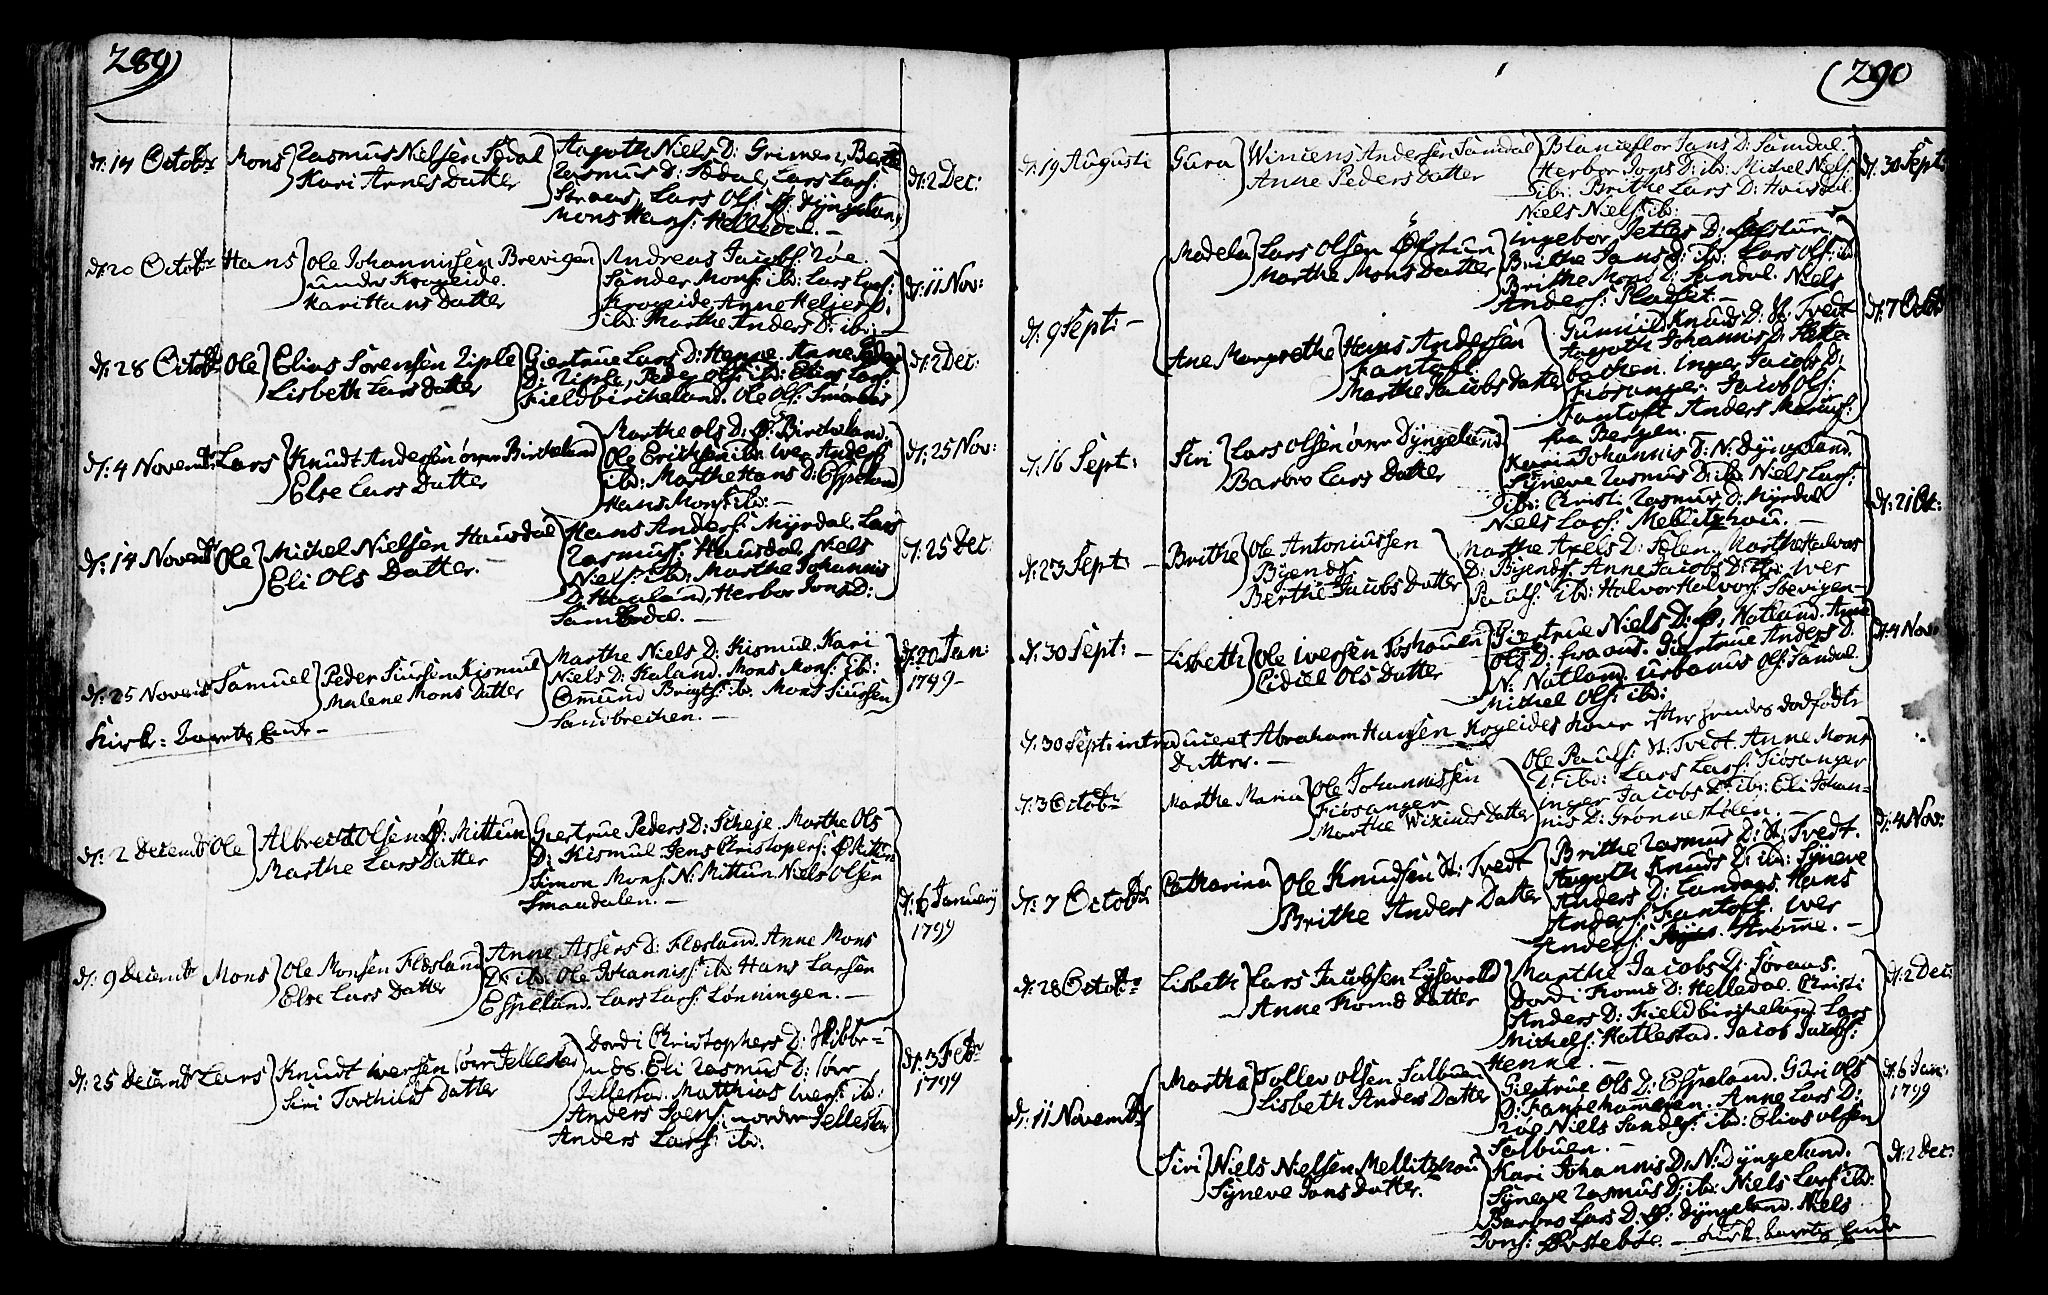 289)
d: 14 Octobr Mons Rasmus Nielsen Sædal
Kari Arnes Datter
Aagoth Niels D: Grimen, Berthe
Rasmus D: Sædal, Lars Lars:
Straus, Lars Ols: Ø: Dyngeland,
Mons Hans: Helledal. –
d: 2 Dec:
d: 20 Octobr Hans Ole Johannissen Brevigen
under Krogeide.
Kari Hans Datter
Andreas Jacobs: Røe.
Sander Mons: ibd: Lars Lars:
Krogeide, Anne Heljers D:
ibd: Marthe Anders D: ib: –
d: 11 Nov:
d: 28 Octobr Ole Elias Sørensen Riple
Lisbeth Lars Datter
Giertrue Lars D: Henne. Anne Peder
D: Riple, Peder Ols: ibd: Elias Lars:
Fieldbircheland. Ole Ols: Smøraas
d: 2 Dec:
d: 4 Novembr Lars Knudt Andersen øvre Bircheland
Else Lars Datter
Marthe Ols D: Ø: Bircheland
Ole Erichsen ibd: Iver Anders:
ibd: Marthe Hans D: Espeland
Hans Mons: ibd: –
d: 25 Nov:
d: 14 Novembr Ole Michel Nielsen Hausdal
Eli Ols Datter. –
Hans Anders: Myrdal. Lars
Rasmus: Hausdal, Niels
Niels: ibd: Marthe Johannis
D: Hauland, Herbor Jons D:
Samdal. –
d: 25 Dec:
d: 25 Novembr Samuel Peder Siursen Kismul
Malene Mons Datter
Marthe Niels D: Kismul. Kari
Niels D: Haland. Mons Mons: ib:
Omund Brugts: ib. Mons Siursen
Sandbrechen. –
d: 20 Jan:
1799 –
Kirke-Aarets Ende –
d: 2 Decembr Ole Albrect Olsen Ø: Mittun
Marthe Lars Datter
Giertrue Peders D: Scheje. Marthe Ols
D: Kismul, Jens Christopers:
Simon Mons: N: Mittun, Niels Olsen
Smaadalen. –
d: 6 January
1799
d: 9 Decembr Mons Ole Monsen Flesland
Else Lars Datter
Anne Assers D: Flesland. Anne Mons
D: ib: Ole Johanniss: ib: Hans Larsen
Espeland. Lars Lars: Lønningen. –
d: 25 Decembr Lars Knudt Iversen sørr Jellestad
Siri Torchils Datter
Dordi Christophers D: Skibbe=
næs. Eli Rasmus D: sørr
Jellestad. Matthias Ivers: ib:
Anders Svens: nordre Jellestad
Anders Lars: ib:
d: 3 Febr
1799
(290
d: 19 Augusti Gura Wincens Andersen Samdal
Anne Peders Datter
Blanceflor Jans D: Samdal.
Herbor Jons D: ib: Michel Niels:
ib: Brithe Lars D: Hausdal.
Niels Niels: ibd:
d: 30 Sept:
d: 9 Sept: –
Madela Lars Olsen Øfstun
Marthe Mons Datter
Ingebor Jetles D: Øfstun.
Brithe Jans D: ibd: Lars Ols: ib:
Brithe Mons D: Sandal. Niels
Anders: Pladset. –
Ane Margrethe Hans Andersen
Fantoft.
Marthe Jacobs Datter
Gunnild Knuds D: St: Tvedt
Aagoth Johannis D: Slette=
bachen. Inger Jacobs D:
Fiøsanger. Jacob Ols:
Fantoft. Anders Marcus:
fra Bergen. –
d: 7 Octob
d: 16 Sept: Siri Lars Olsen øvre Dyngeland
Barbro Lars Datter
Kari Johannis D: N: Dyngeland.
Syneve Rasmus D: ib: Niels Lars:
ib: Christi Rasmus D: Myrdal
Niels Lars: Mellitzhou. –
d: 21 Oct:
d: 23 Sept: – Brithe Ole Antoniussen
Byends.
Berthe Jacobs Datter
Marthe Axels D: Sælen. Marthe Halvors
D: Byends. Anne Jacobs D: ibd: Iver
Pouls: ibd: Halvor Halvors: Storvigen –
d: 30 Sept: – Lisbeth Ole Iversen Toshouen
Eidiel Ols Datter
Giertrue Niels D: Ø: Natland. Anne
Ols D: Traaus. Giertrue Anders D:
N: Natland. Urbanus Ols: Sandal.
Michel Ols: ibd:
d: 4 Nov:
d: 30 Sept: introduceret Abraham Hansen Krogeides Kone efter hendes dødfødte
Datter. –
d: 3 Octobr Marthe Maria Ole Johannissen
Fiøsanger
Marthe Wixinds Datter
Ole Pauls: St: Tvedt. Anne Mons
D: ibd: Lars Lars: Fiøsanger
Inger Jacobs D: ib: Eli Johan=
nis D: Grønneholen. –
d: 4 Nov:
d: 7 Octobr Catharina Ole Knudsen St: Tvedt
Brithe Anders Datter
Brithe Rasmus D: St: Tvedt.
Aagoth Knuds D: ibd: Syneve
Anders D: Landaas. Hans
Anders: Fantoft. Iver
Anders: Strømme. –
d: 28 Octobr Lisbeth Lars Jacobsen Lysevold
Anne Knuds Datter
Marthe Jacobs D: Søraas.
Dordi Knuds D: Helledal. Christi
Anders D: Fieldbircheland. Lars
Michels: Hatlestad. Jacob Jacobs:
Henne. –
d: 2 Dec:
d: 11 Novembr
Martha Tollev Olsen Salbuen
Lisbeth Anders Datter
Giertrue Ols D: Espeland. Guri Ols
D: Fantehammeren. Anne Lars D:
Røe Niels Sandes: ib: Elias Olsen
Salbuen. –
d: 6 Jan:
1799
Siri Niels Nielsen Mellitzhou
Syneve Jans Datter.
Kari Johannis D: N: Dyngeland.
Syneve Rasmus D: ib: Niels Lars: ib:
Barbro Lars D: Ø: Dyngeland. Niels
Jons: Birkeboe. – Kirk-Aarets Ende
d: 2 Dec: